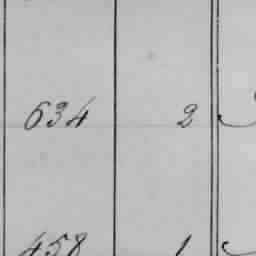 634 2
458 1